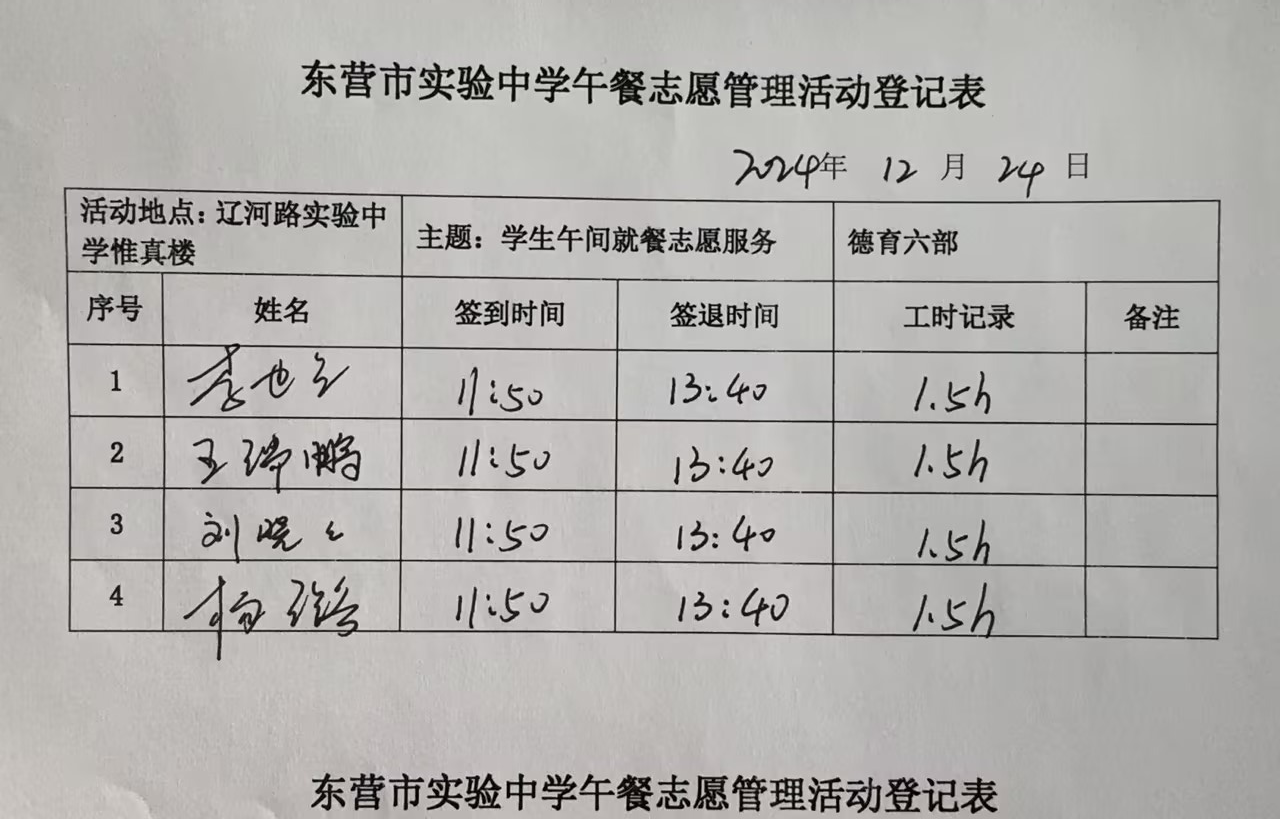 东营市实验中学午餐志愿管理活动登记表
2024年 12 月 24 日
活动地点：辽河路实验中学惟真楼 主题：学生午间就餐志愿服务 德育六部
序号 姓名 签到时间 签退时间 工时记录 备注
1 李 11:50 13:40 1.5h
2 王瑞鹏 11:50 13:40 1.5h
3 刘晓 11:50 13:40 1.5h
4 杨 11:50 13:40 1.5h
东营市实验中学午餐志愿管理活动登记表